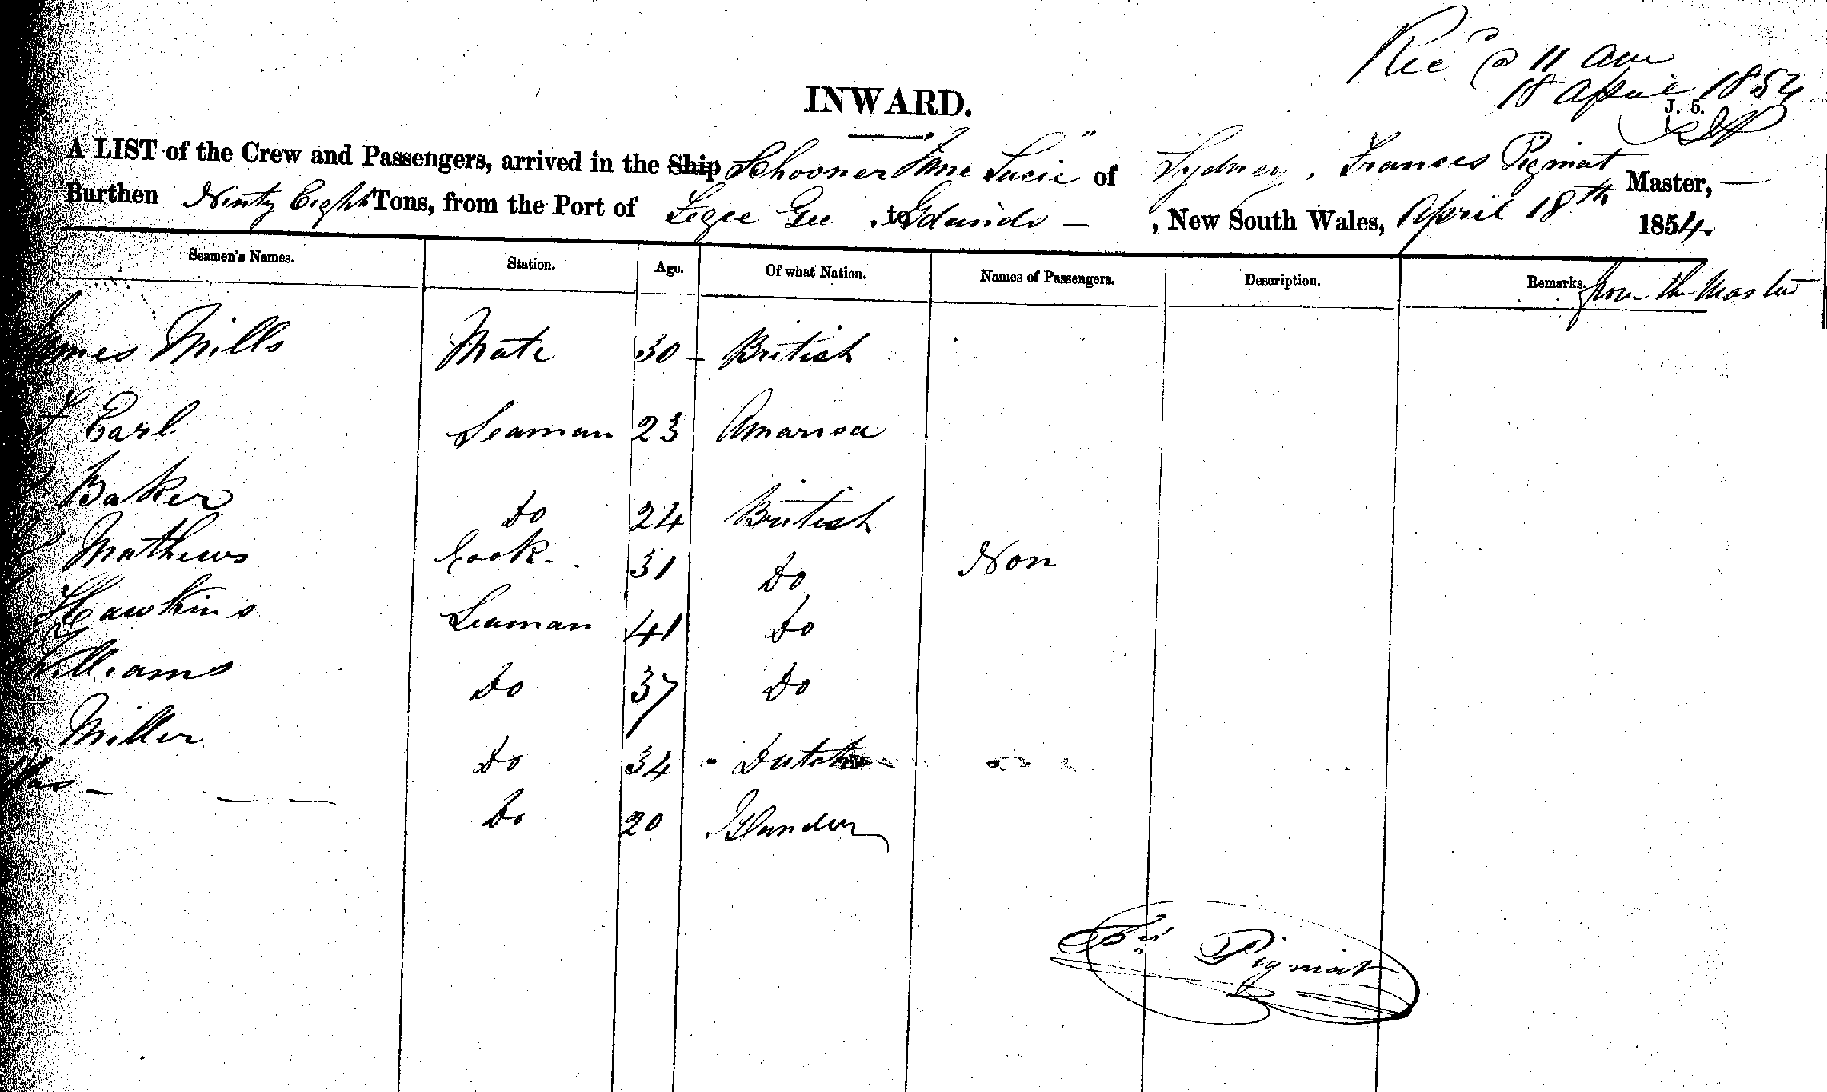 Rec^d @ 11 am
18 April 1854
J. 5.
INWARD.
A LIST of the Crew and Passengers, arrived in the Ship Schooner "Jane Lucie" of Sydney, Frances Pigniat Master,
Burthen Ninty Eight Tons, from the Port of to Islands , New South Wales, April 18th 1854.
Seamen's Names. Station. Age. Of what Nation. Names of Passengers. Description. Remarks from the Master
Mills Mate 30 British
Earl Seaman 23 Amarica
Baker Do 24 British
Mathews Cook 31 Do Non
Hawkins Seaman 41 Do
Williams Do 37 Do
Miller Do 34 Dutch
Do 20 Islander
Pigniat